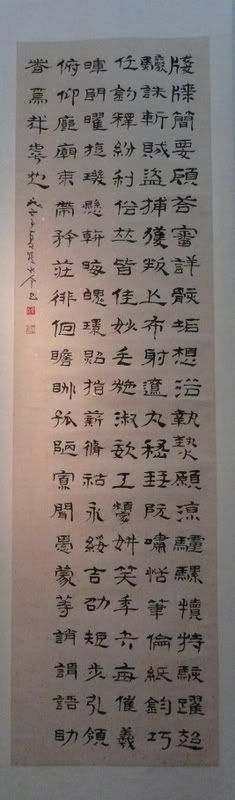 牋牒簡要顧答審詳骸垢想浴執熱願涼驢騾犢特駭躍超
驤誅斬賊盜捕獲叛亡布射遼丸嵇琴阮嘯恬筆倫紙鈞巧
任釣釋紛利俗竝皆佳妙毛施淑姿工顰妍笑年矢每催羲
暉朗曜旋璣懸斡晦魄環照指薪脩祜永綏吉劭矩步引領
俯仰廊廟束帶矜莊徘徊瞻眺孤陋寡聞愚蒙等誚謂語助
者焉哉乎也